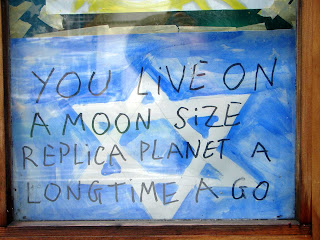 YOU LiVE ON
A MOON SiZE
REPLiCA PLANET A
LONGTiME A GO